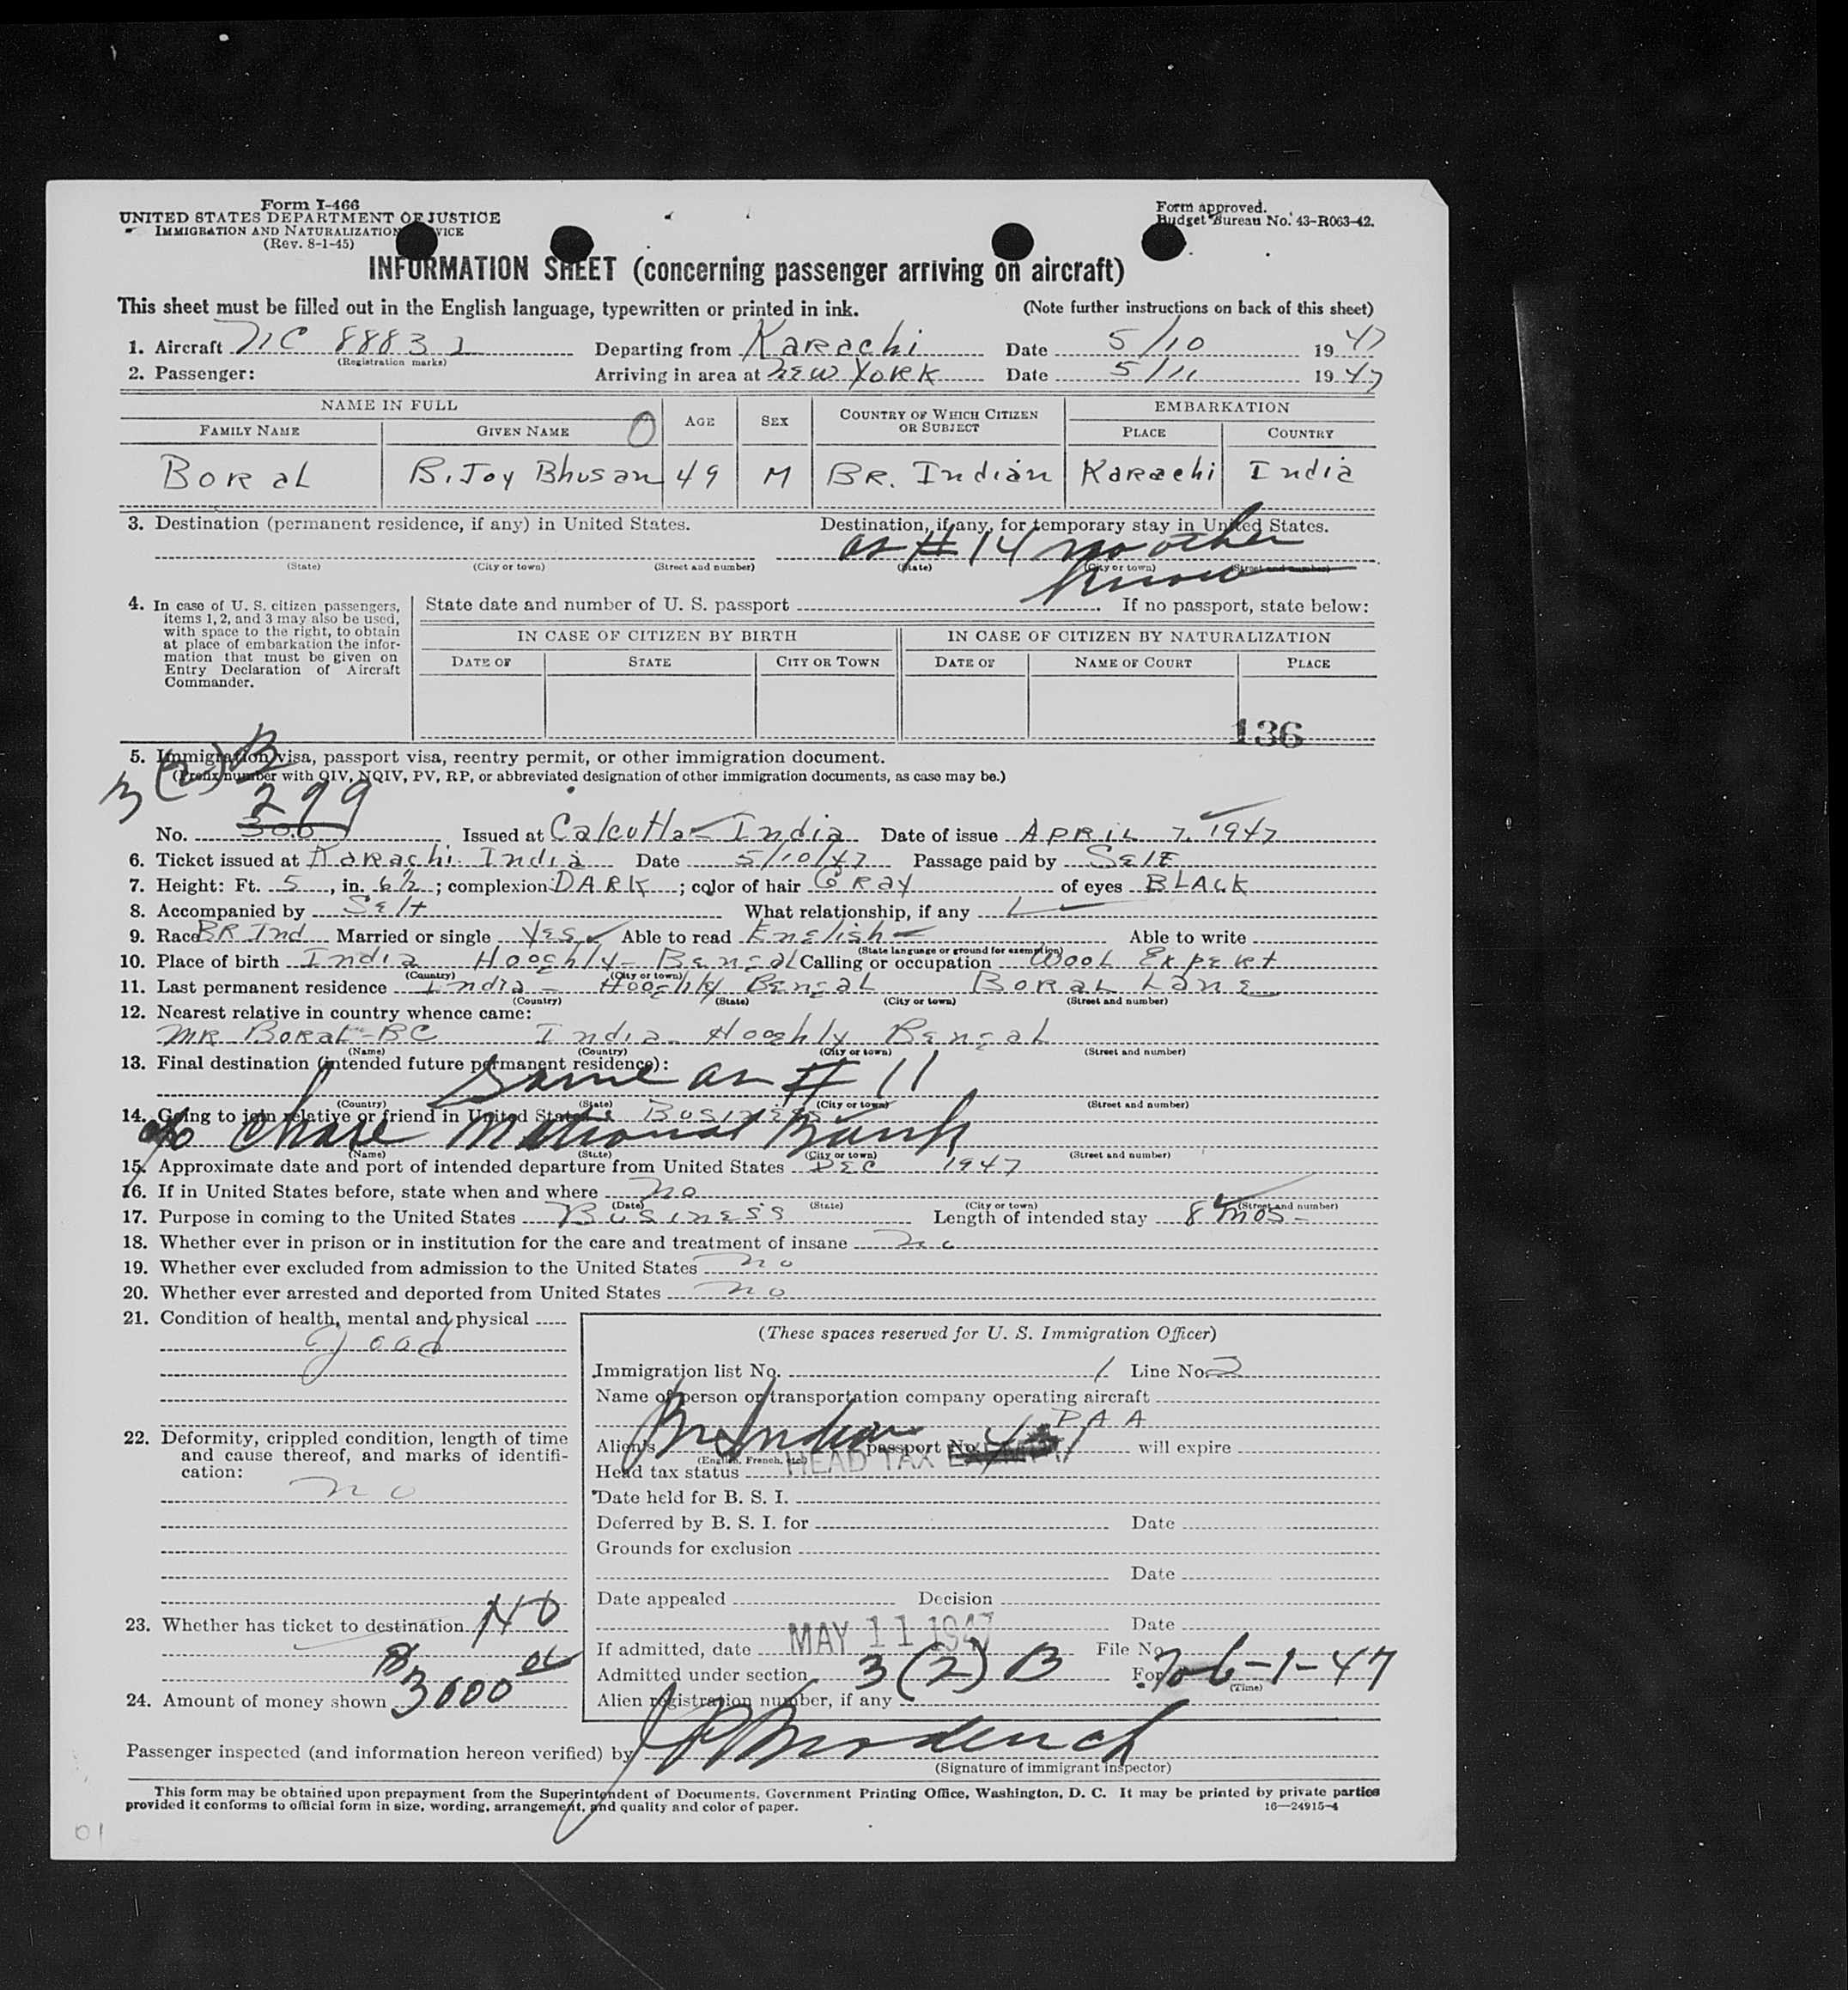 Form I-466
UNITED STATES DEPARTMENT OF JUSTICE
IMMIGRATION AND NATURALIZATION SERVICE
(Rev. 8-1-45)
Form approved.
Budget Bureau No. 43-R063-42.
INFORMATION SHEET (concerning passenger arriving on aircraft)
This sheet must be filled out in the English language, typewritten or printed in ink. (Note further instructions on back of this sheet)
1. Aircraft NC 88832 Departing from Karachi Date 5/10 1947
(Registration marks)
2. Passenger: Arriving in area at New York Date 5/11 1947
NAME IN FULL AGE SEX COUNTRY OF WHICH CITIZEN OR SUBJECT EMBARKATION
FAMILY NAME GIVEN NAME PLACE COUNTRY
Boral B. Joy Bhusan 49 M BR. Indian Karachi India
3. Destination (permanent residence, if any) in United States. Destination, if any, for temporary stay in United States.
as # 14 no other
know
(State) (City or town) (Street and number) (State) (City or town) (Street and number)
4. In case of U. S. citizen passengers, items 1, 2, and 3 may also be used, with space to the right, to obtain at place of embarkation the information that must be given on Entry Declaration of Aircraft Commander.
State date and number of U. S. passport If no passport, state below:
IN CASE OF CITIZEN BY BIRTH IN CASE OF CITIZEN BY NATURALIZATION
DATE OF STATE CITY OR TOWN DATE OF NAME OF COURT PLACE
136
5. Immigration visa, passport visa, reentry permit, or other immigration document.
(Prefix number with QIV, NQIV, PV, RP, or abbreviated designation of other immigration documents, as case may be.)
3(2)B
299
No. 300 Issued at Calcutta - India Date of issue April 7, 1947
6. Ticket issued at Karachi. India Date 5/10/47 Passage paid by Self
7. Height: Ft. 5, in. 6½; complexion DARK; color of hair Gray of eyes BLACK
8. Accompanied by Self What relationship, if any
9. Race BR Ind Married or single Yes Able to read English Able to write
(State language or ground for exemption)
10. Place of birth India Hooghly - Bengal Calling or occupation Wool Expert
(Country) (City or town)
11. Last permanent residence India - Hooghly Bengal Boral Lane
(Country) (State) (City or town) (Street and number)
12. Nearest relative in country whence came:
MR Boral - BC India - Hooghly Bengal
(Name) (Country) (City or town) (Street and number)
13. Final destination (intended future permanent residence):
Same as # 11
(Country) (State) (City or town) (Street and number)
14. Going to join relative or friend in United States: Business
c/o Chase National Bank
(Name) (State) (City or town) (Street and number)
15. Approximate date and port of intended departure from United States Dec 1947
16. If in United States before, state when and where no
(Date) (State) (City or town) (Street and number)
17. Purpose in coming to the United States Business Length of intended stay 8 mos -
18. Whether ever in prison or in institution for the care and treatment of insane no
19. Whether ever excluded from admission to the United States no
20. Whether ever arrested and deported from United States no
21. Condition of health, mental and physical
good
22. Deformity, crippled condition, length of time and cause thereof, and marks of identification:
no
23. Whether has ticket to destination NO
24. Amount of money shown $3000 00
(These spaces reserved for U. S. Immigration Officer)
Immigration list No. 1 Line No. 2
Name of person or transportation company operating aircraft
PAA
Alien's Br Indian passport No. will expire
(English, French, etc.)
Head tax status HEAD TAX EXEMPT
Date held for B. S. I.
Deferred by B. S. I. for Date
Grounds for exclusion
Date
Date appealed Decision
Date
If admitted, date MAY 11 1947 File No.
Admitted under section 3(2) B For To 6-1-47
(Time)
Alien registration number, if any
Passenger inspected (and information hereon verified) by
(Signature of immigrant inspector)
This form may be obtained upon prepayment from the Superintendent of Documents, Government Printing Office, Washington, D. C. It may be printed by private parties
provided it conforms to official form in size, wording, arrangement, and quality and color of paper. 16—24915-4